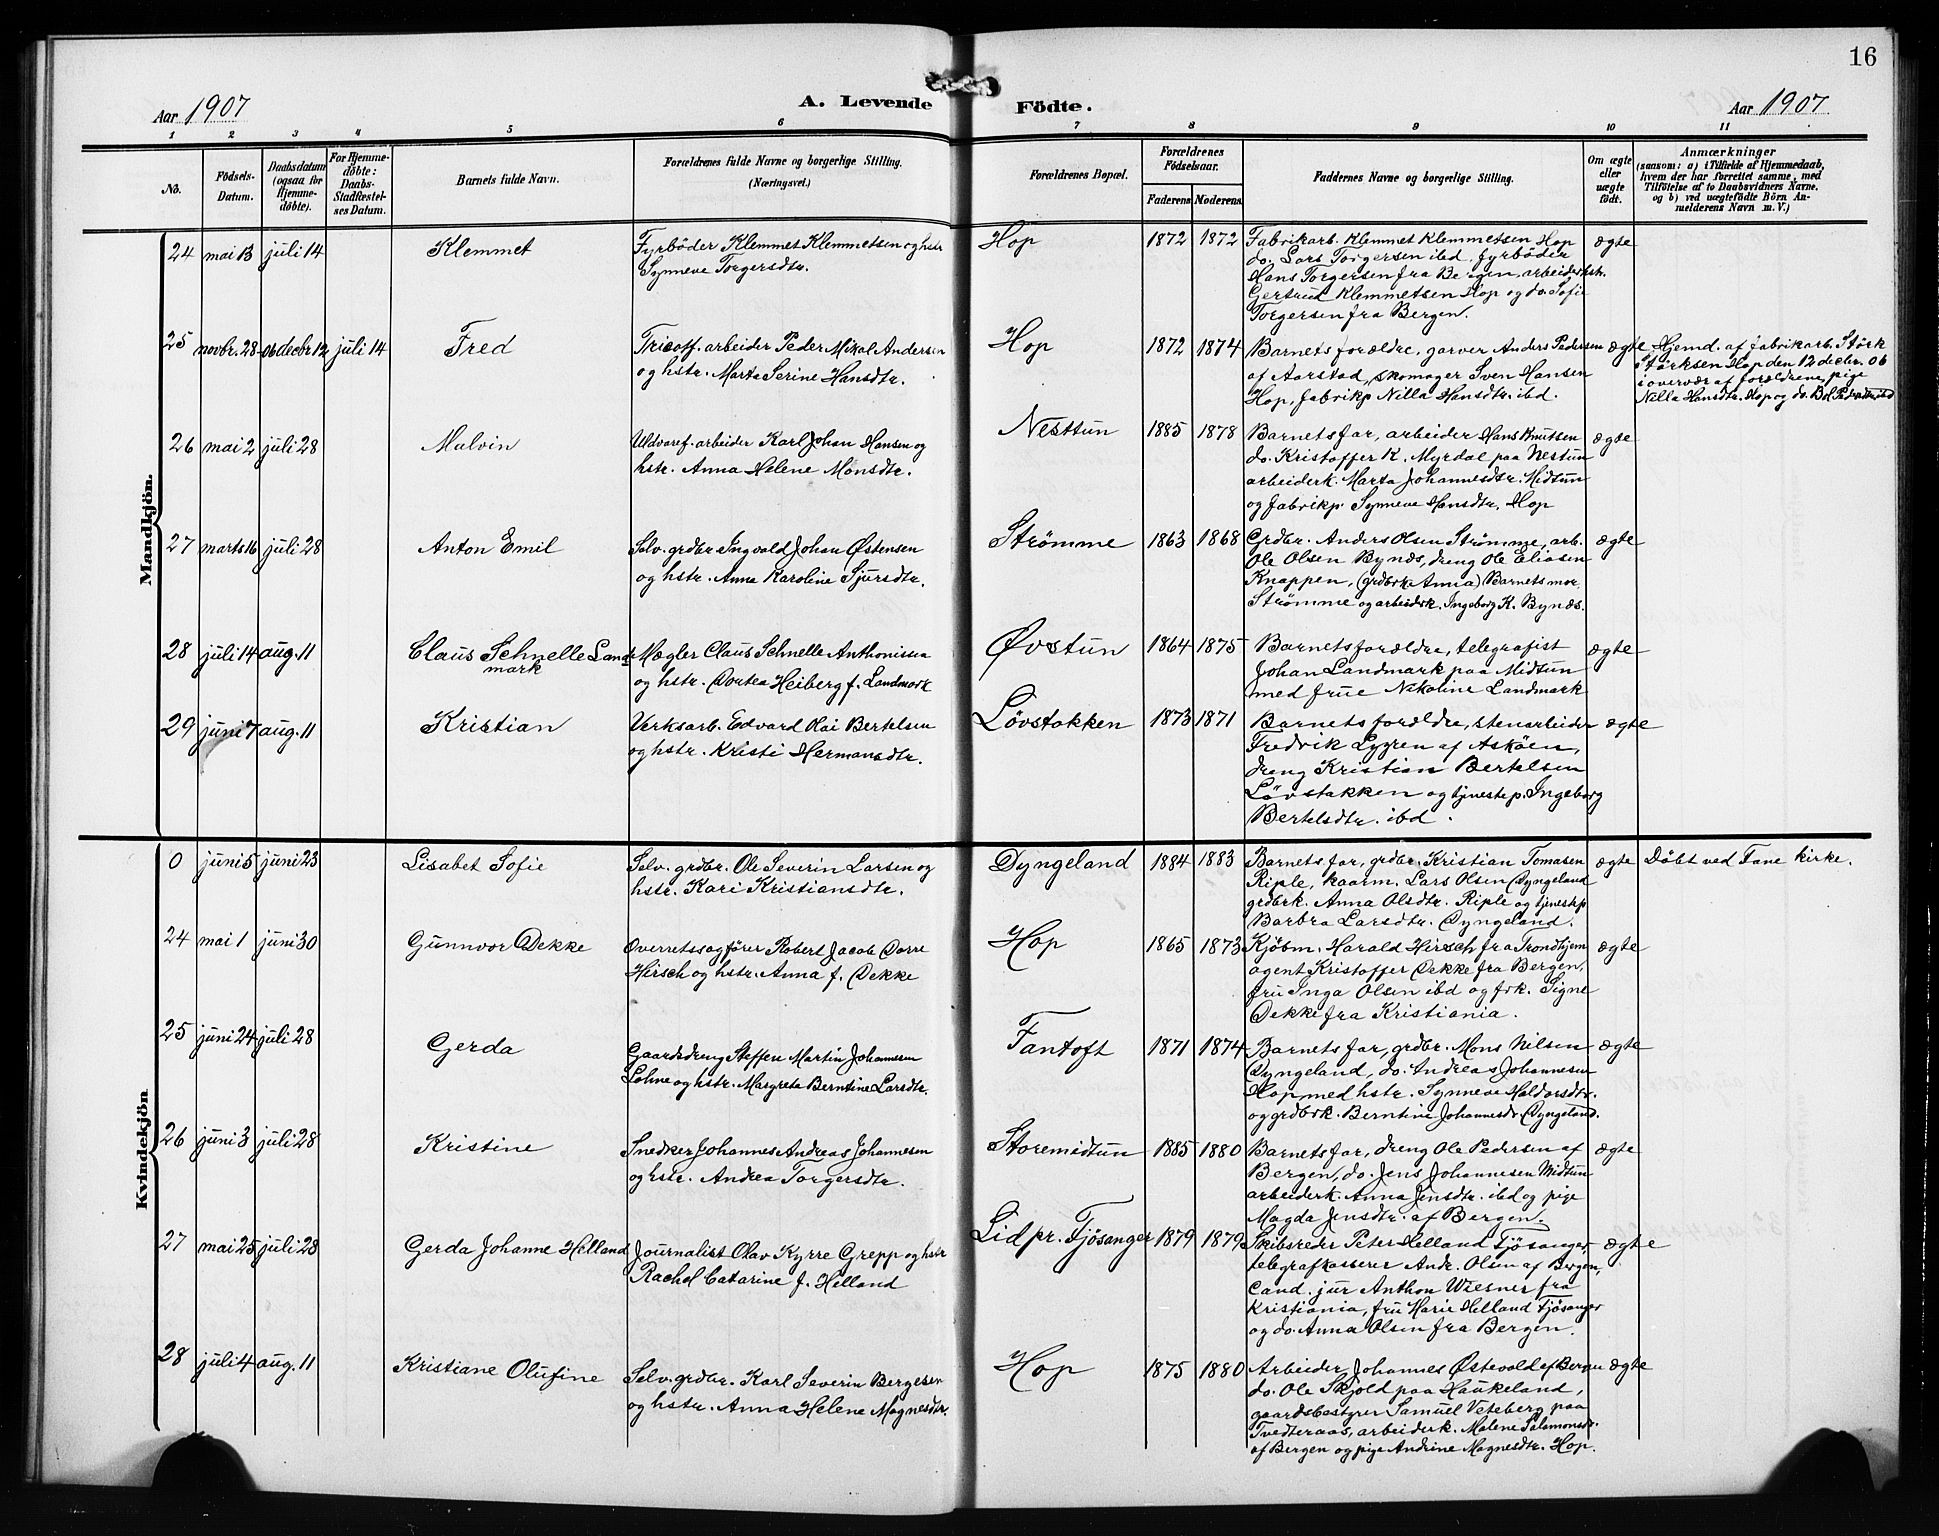 16
Aar 1907
A. Levende Födte.
Aar 1907
1 2 3 4 5 6 7 8 9 10 11
No.
Födsels-Datum.
Daabsdatum (ogsaa for Hjemme-döbte).
For Hjemme-döbte: Daabs-Stadfæstel-ses Datum.
Barnets fulde Navn.
Forældrenes fulde Navne og borgerlige Stilling.
(Næringsvei.)
Forældrenes Bopæl.
Forældrenes Födselsaar.
Faderens Moderens
Faddernes Navne og borgerlige Stilling.
Om ægte eller uægte födt.
Anmærkninger
(saasom: a) i Tilfælde af Hjemmedaab,
hvem der har forrettet samme, med
Tilföielse af to Daabsvidners Navne,
og b) ved uægtefödte Börn An-
melderens Navn m. V.)
Mandkjön.
24 mai 13 juli 14 Klemmet
Fyrbøder Klemmet Klemmetsen og hstr
Synneve Torgersdtr.
Hop 1872 1872
Fabrikarb. Klemmet Klemmetsen Hop
do. Lars Torgersen ibd, fyrbøder
Hans Torgersen fra Bergen, arbeiderhstr.
Gertrud Klemmetsen Hop og do. Sofie
Torgersen fra Bergen.
ægte
25 novbr. 28-06 decbr 12 juli 14 Fred
Tricotf. arbeider Peder Mikal Andersen
og hstr. Marta Serine Hansdtr.
Hop 1872 1874
Barnets forældre, garver Anders Pedersen
af Aarstad, skomager Sven Hansen
Hop, fabrikp. Nilla Hansdtr. ibd.
ægte
Hjemd. af fabrikarb. Størk
Størksen Hop den 12 decbr. 06
i overvær af forældrene, pige
Nilla Hansdtr. Hop og do. Bol. Pedersdtr ibd
26 mai 2 juli 28 Malvin
Uldvaref. arbeider Karl Johan Hansen og
hstr. Anna Helene Monsdtr.
Nesttun 1885 1878
Barnets far, arbeider Hans Knutsen
do. Kristoffer K. Myrdal paa Nestun
arbeiderk. Marta Johannesdtr. Midtun
og fabrikp. Synneve Hansdtr. Hop
ægte
27 marts 16 juli 28 Anton Emil
Selv. grdbr. Ingvald Johan Østensen
og hstr. Anna Karoline Sjursdtr.
Strømme 1863 1868
Grdbr. Anders Olsen Strømme, arb.
Ole Olsen Bynæs, dreng Ole Eliasen
Knappen, (grdbrk. Anna) Barnets mor
Strømme og arbeidrk. Ingeborg K. Bynæs.
ægte
28 juli 14 aug. 11 Claus Schnelle Land-
mark
Mægler Claus Schnelle Anthonissen
og hstr. Dortea Heiberg f. Landmark
Øvstun 1864 1875
Barnets forældre, telegrafist
Johan Landmark paa Midtun
med frue Nikoline Landmark
ægte
29 juni 7 aug. 11 Kristian
Verksarb. Edvard Olai Bertelsen
og hstr. Kristi Hermansdtr.
Løvstakken 1873 1871
Barnets forældre, stenarbeider
Fredrik Lygren af Askøen,
dreng Kristian Bertelsen
Løvstakken og tjenestep. Ingeborg
Bertelsdtr. ibd.
ægte
Kvindekjön
0 juni 5 juni 23 Lisabet Sofie
Selv. grdbr. Ole Severin Larsen og
hstr. Kari Kristiansdtr.
Dyngeland 1884 1883
Barnets far, grdbr. Kristian Tomasen
Riple, kaarm. Lars Olsen Dyngeland
grdbrk. Anna Olsdtr. Riple og tjenestep
Barbra Larsdtr. Dyngeland.
ægte
Døbt ved Fane kirke.
24 mai 1 juni 30 Gunnvor Dekke
Overretssagfører Robert Jacob Dorre
Hirsch og hstr. Anna f. Dekke
Hop 1865 1873
Kjøbm. Harald Hirsch fra Trondhjem
agent Kristoffer Dekke fra Bergen,
fru Inga Olsen ibd og frk. Signe
Dekke fra Kristiania.
ægte
25 juni 24 juli 28 Gerda
Gaardsdreng Steffen Martin Johannesen
Lohne og hstr. Margreta Berntine Larsdtr.
Fantoft 1871 1874
Barnets far, grdbr. Mons Nilsen
Dyngeland, do. Andreas Johannesen
Hop med hstr. Synneve Haldorsdtr.
og grdbrk. Berntine Johannesdr. Dyngeland.
ægte
26 juni 3 juli 28 Kristine
Snedker Johannes Andreas Johannesen
og hstr. Andrea Torgersdtr.
Storemidtun 1885 1880
Barnets far, dreng Ole Pedersen af
Bergen, do. Jens Johannesen Midtun
arbeiderk. Anna Jensdtr. ibd og pige
Magda Jensdtr. af Bergen.
ægte
27 mai 25 juli 28 Gerda Johanne Helland
Journalist Olav Kyrre Grepp og hstr
Rachel Catarine f. Helland
Lid pr. Fjøsanger 1879 1879
Skibsreder Peter Helland Fjøsanger,
telegrafkasserer Andr. Olsen af Bergen,
Cand. jur Anthon Wiesner fra
Kristiania, fru Marie Helland Fjøsanger
og do. Anna Olsen fra Bergen.
ægte
28 juli 4 aug. 11 Kristiane Olufine
Selv. grdbr. Karl Severin Bergesen
og hstr. Anna Helene Magnesdtr.
Hop 1875 1880
Arbeider Johannes Østevold af Bergen
do. Ole Skjold paa Haukeland,
gaardsbestyrer Samuel Veteberg paa
Tvedteraas, arbeiderk. Malene Salamonsdr.
af Bergen og pige Andrine Magnesdtr. Hop.
ægte